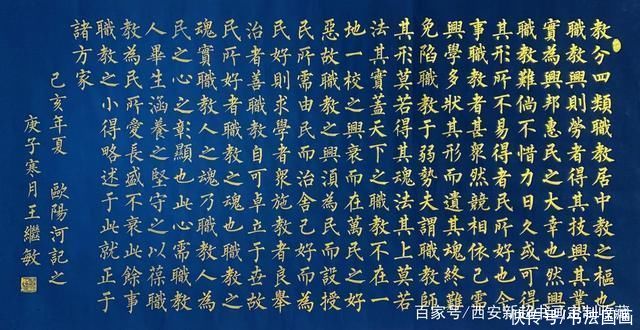 教分四類職教居中教之樞也
職教興則勞者得其技興其業
實為興邦惠民之大幸也然興
職教難倘不惜力日久或可得
其形所不易得者民所好也今
事職教者甚衆然競相依己需
興學多狀其形而遺其魂終難
免陷職教于弱勢夫謂職教師
其形莫若得其魂法其上莫若
法其實蓋天下之職教不在一
地一校之興衰而在萬民之好
惡故職教之興須為民而設授
民所需由民而治舍己好而為
民好則求學者衆施教者良舉
治者善職教自可卓立于世故
民所好者職教之魂也職教之
魂實職教人之魂乃職教人為
民之心之彰顯也此心需職教
人畢生涵養之堅守之以葆職
教為民所愛長盛不衰此餘事
職教之小得略述于此就正于
諸方家
己亥年夏 歐陽河記之
庚子寒月王繼敏
快传号/书法国画